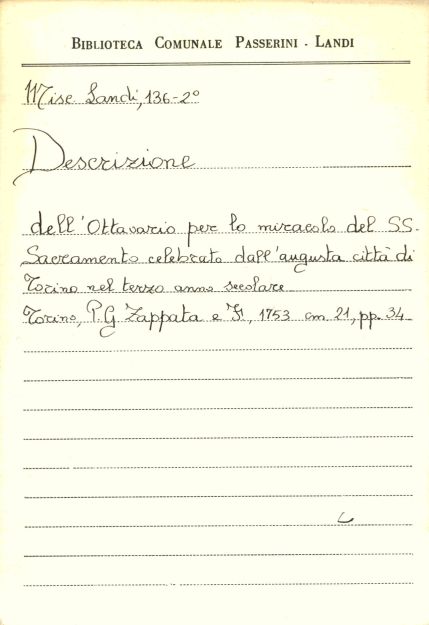 BIBLIOTECA COMUNALE PASSERINI - LANDI
Misc Landi, 136-2º
Descrizione
dell'Ottavario per lo miracolo del SS.
Sacramento celebrato dall'augusta città di
Torino nel terzo anno secolare
Torino, P.G Zappata e F., 1753 cm 21, pp. 34